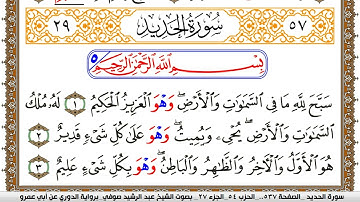 ٢٩ سُورَةُ الحَدِيدِ ٥٧
بِسْمِ اللَّهِ الرَّحْمَٰنِ الرَّحِيمِ
سَبَّحَ لِلَّهِ مَا فِي السَّمَٰوَٰتِ وَالْأَرْضِ وَهْوَ الْعَزِيزُ الْحَكِيمُ ١ لَهُ مُلْكُ
السَّمَٰوَٰتِ وَالْأَرْضِ يُحْيِ وَيُمِيتُ وَهْوَ عَلَىٰ كُلِّ شَيْءٍ قَدِيرٌ ٢
هُوَ الْأَوَّلُ وَالْآخِرُ وَالظَّٰهِرُ وَالْبَاطِنُ وَهْوَ بِكُلِّ شَيْءٍ عَلِيمٌ ٣
سورة الحديد _ الصفحة ٥٣٧ _ الحزب ٥٤ _ الجزء ٢٧ _ بصوت الشيخ عبد الرشيد صوفي _ برواية الدوري عن أبي عمرو